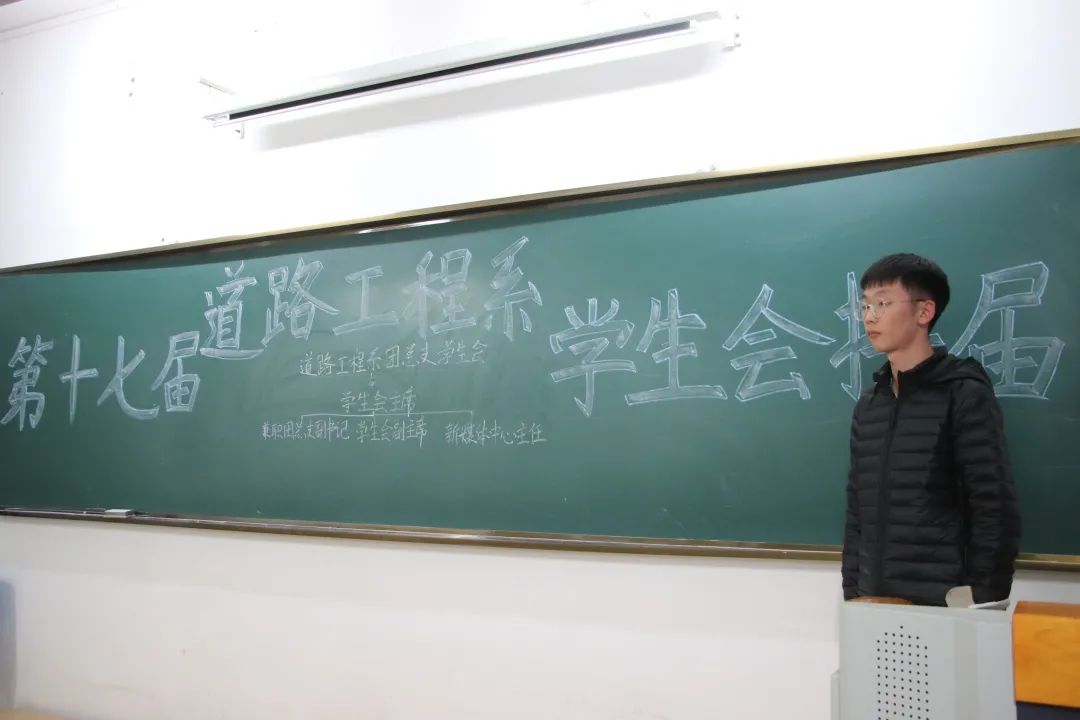 第十七届 道路工程系 学生会换届
道路工程系团总支学生会
学生会主席
兼职团总支副书记 学生会副主席 新媒体中心主任